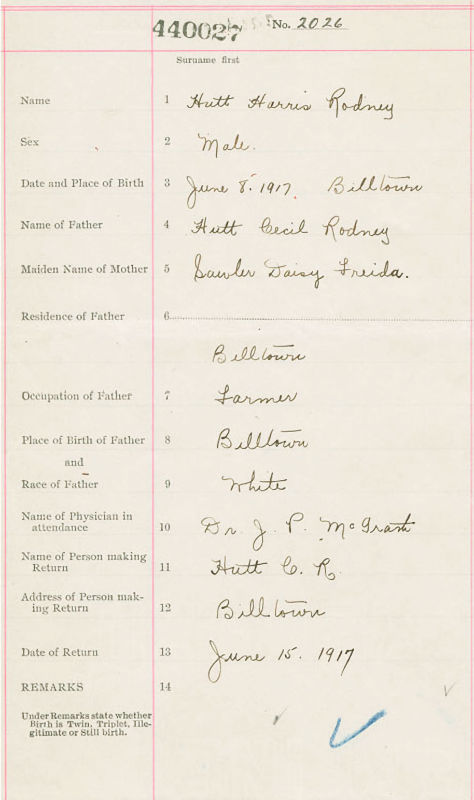 440027 No. 2026
Surname first
Name 1 Hutt Harris Rodney
Sex 2 Male.
Date and Place of Birth 3 June 8. 1917. Billtown
Name of Father 4 Hutt Cecil Rodney
Maiden Name of Mother 5 Sawler Daisy Freida.
Residence of Father 6
Billtown
Occupation of Father 7 Farmer
Place of Birth of Father 8 Billtown
and
Race of Father 9 White
Name of Physician in
attendance 10 Dr. J. P. McGrath
Name of Person making
Return 11 Hutt C. R.
Address of Person mak-
ing Return 12 Billtown
Date of Return 13 June 15. 1917
REMARKS 14
Under Remarks state whether
Birth is Twin, Triplet, Ille-
gitimate or Still birth.